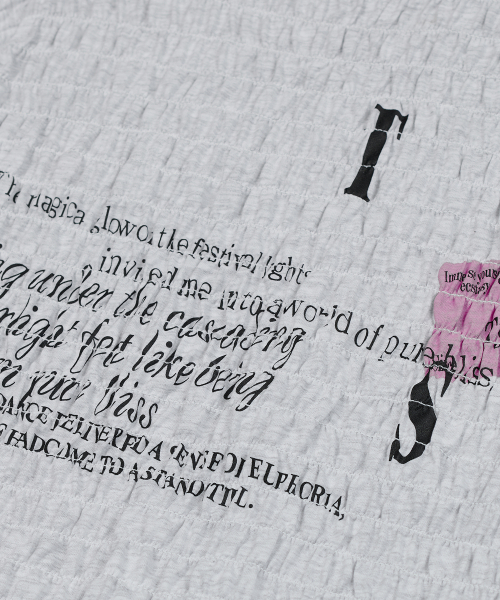 T
The magical glow of the festival lights
invited me into a world of pure bliss
under the cascading
night felt like being
in pure bliss
DANCE DELIVERED A SENSE OF EUPHORIA,
HAD COME TO A STANDSTILL.
ecstasy
S